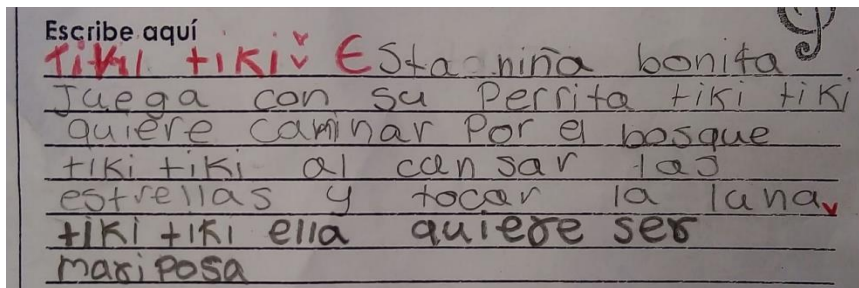 Escribe aquí
Tiki tiki Esta niña bonita
Juega con su Perrita tiki tiki
quiere caminar Por el bosque
tiki tiki al can sar las
estrellas y tocar la luna
tiki tiki ella quiere ser
mariposa